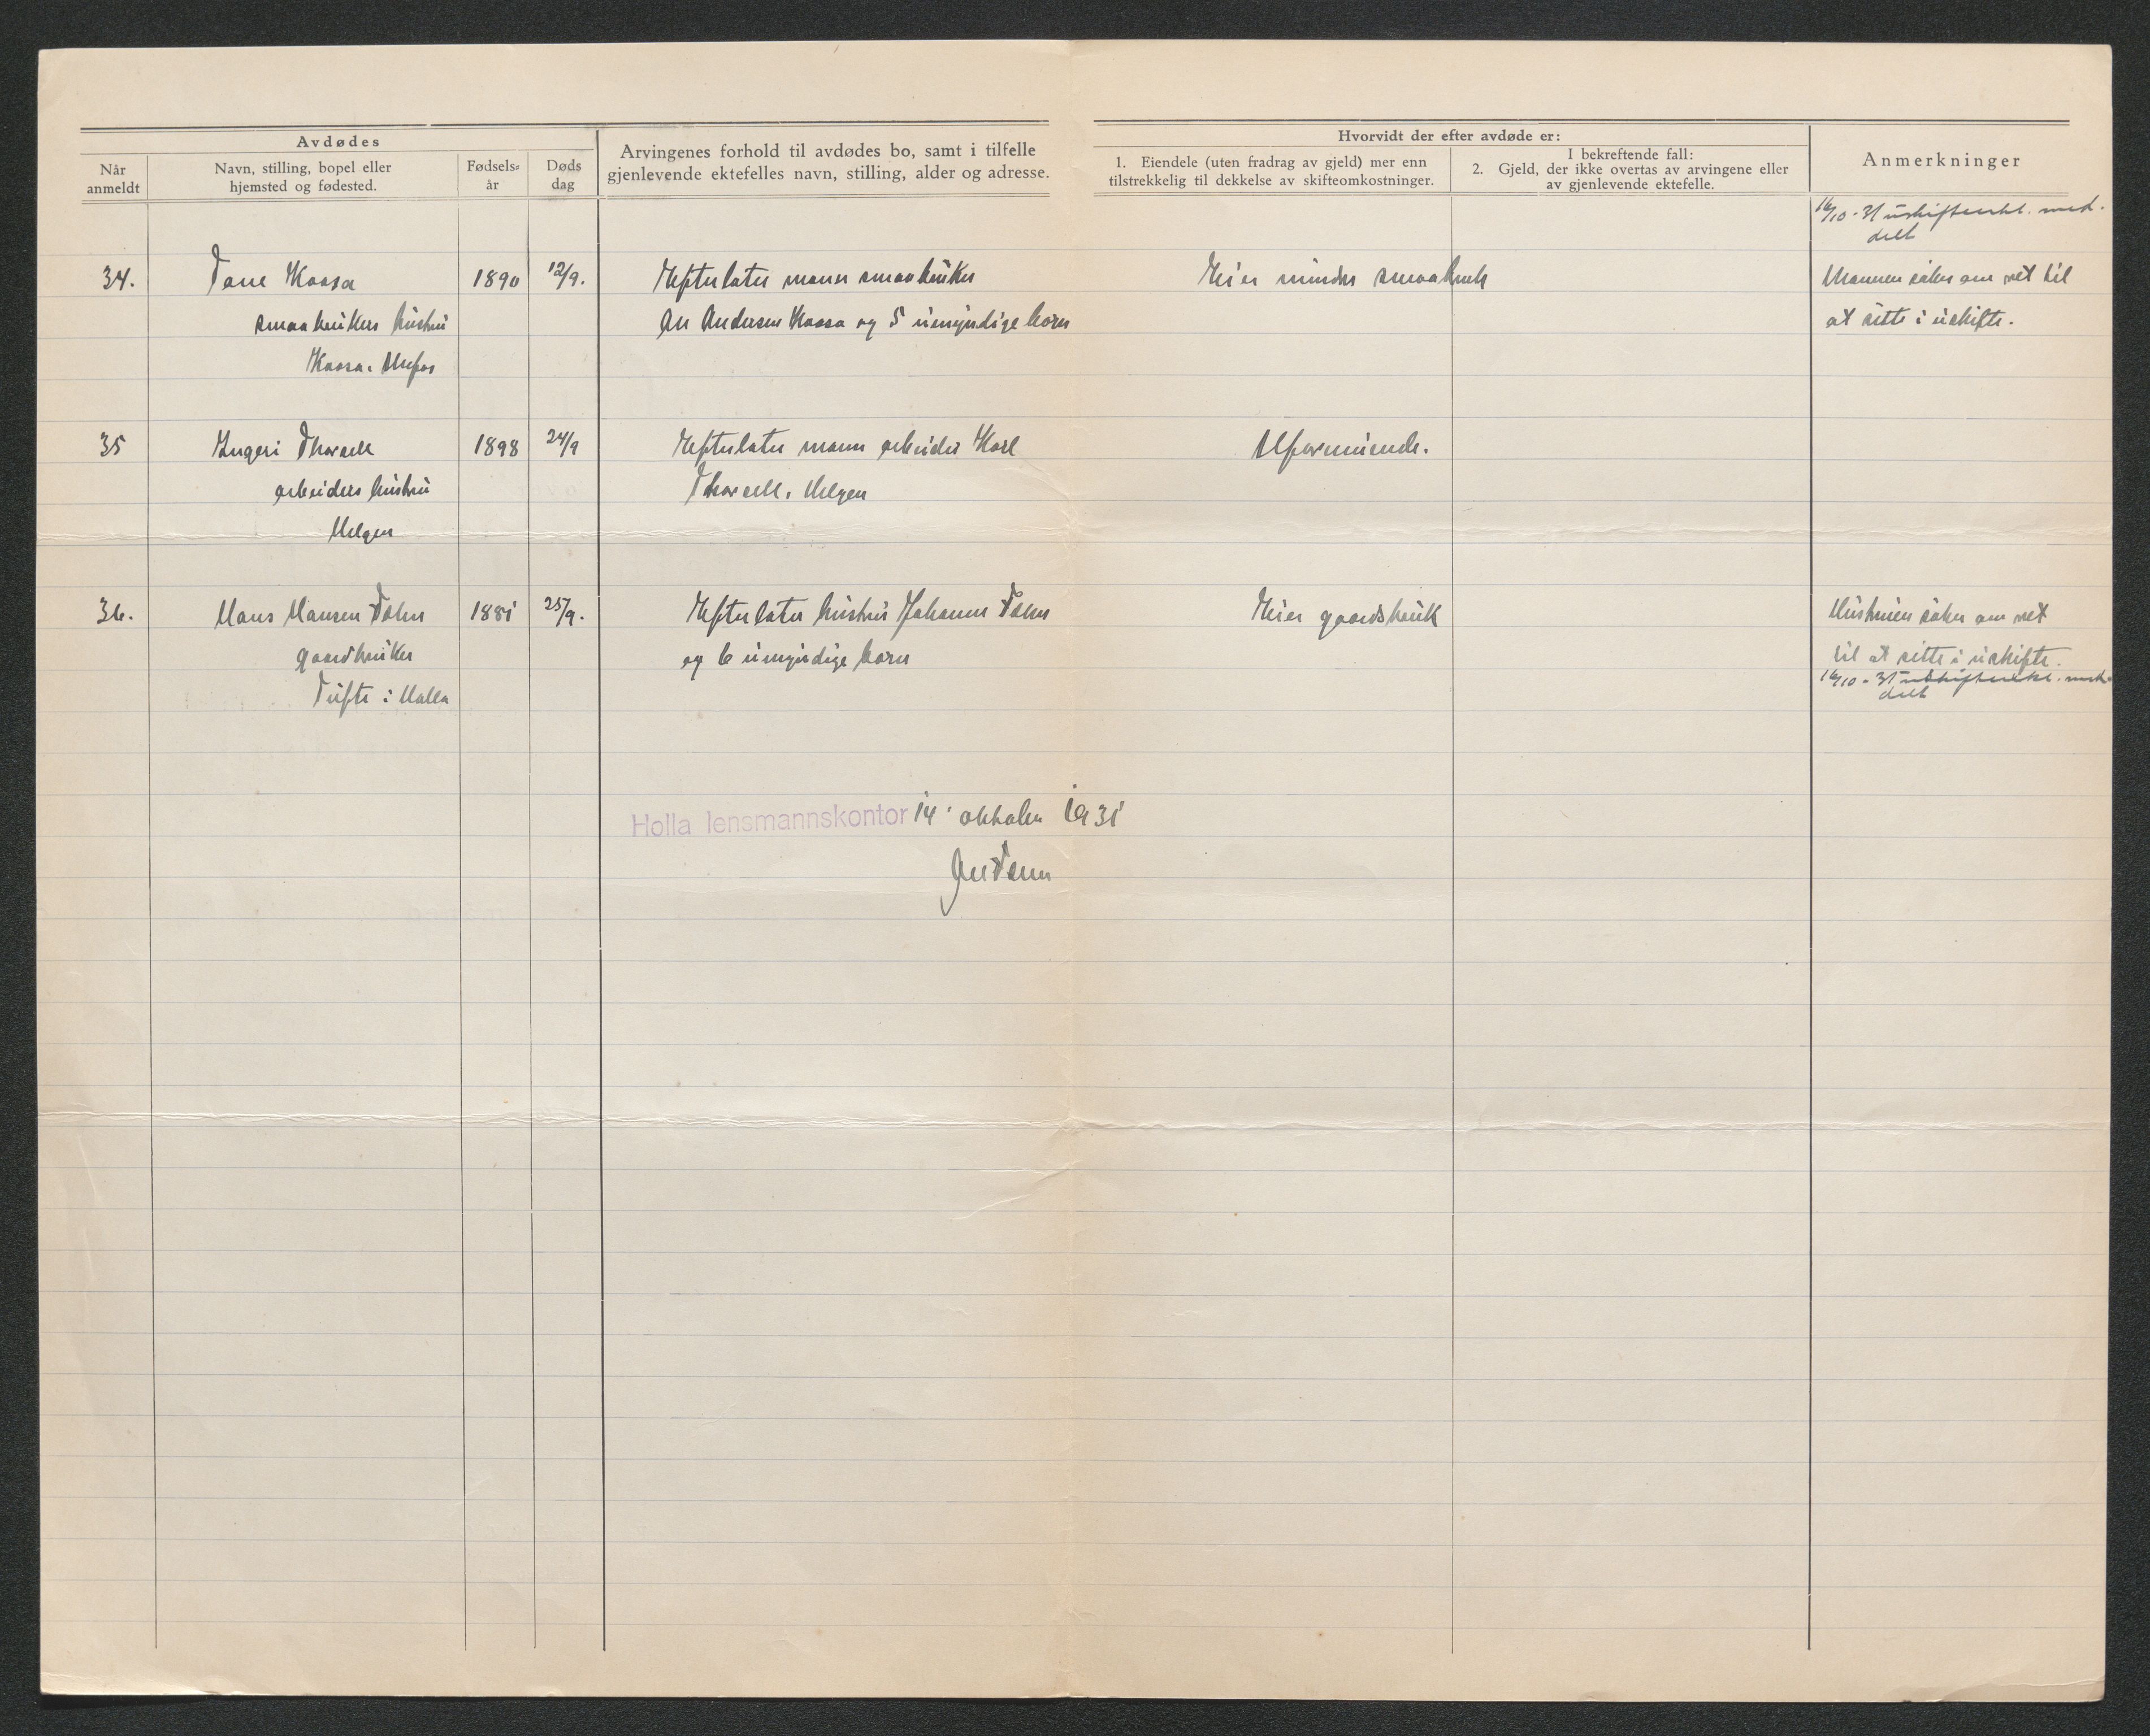 Avdødes
Når anmeldt
Navn, stilling, bopel eller hjemsted og fødested.
Fødselsår
Døds dag
Arvingenes forhold til avdødes bo, samt i tilfelle gjenlevende ektefelles navn, stilling, alder og adresse.
Hvorvidt der efter avdøde er:
1. Eiendele (uten fradrag av gjeld) mer enn tilstrekkelig til dekkelse av skifteomkostninger.
I bekreftende fall:
2. Gjeld, der ikke overtas av arvingene eller av gjenlevende ektefelle.
Anmerkninger
16/10-31 uskifteatt. med-
delt
34.
Tone Kaasa
smaabrukers hustru
Kaasa. Ulefos
1890
12/9.
Efterlater mann smaabruker
Andersen Kaasa og 5 umyndige barn
Eier mindre smaabruk
Mannen søker om ret til
at sitte i uskifte.
35
Ingeri Thorsell
arbeiders hustru
Helgen
1898
24/9
Efterlater mann arbeider Karl
Thorsell. Helgen
Uformuende.
36.
Hans Hansen
gaardbruker
Tufte i Holla
1881
25/9.
Efterlater hustru Johanne
og 6 umyndige barn
Eier gaardsbruk
Hustruen søker om ret
til at sitte i uskifte.
16/10-31 uskifteatt. med-
delt
Holla lensmannskontor 14' oktober 1931